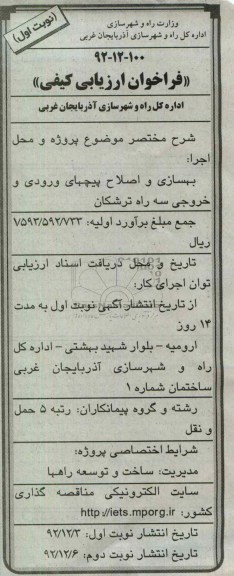 (نوبت اول)
وزارت راه و شهرسازی
اداره کل راه و شهرسازی آذربایجان غربی
۹۲-۱۲-۱۰۰
«فراخوان ارزیابی کیفی»
اداره کل راه و شهرسازی آذربایجان غربی
شرح مختصر موضوع پروژه و محل
اجرا:
بهسازی و اصلاح پیچهای ورودی و
خروجی سه راه ترشکان
جمع مبلغ برآورد اولیه: ۷۵۹۳/۵۹۲/۷۳۳
ریال
تاریخ و محل دریافت اسناد ارزیابی
توان اجرای کار:
از تاریخ انتشار آگهی نوبت اول به مدت
۱۴ روز
ارومیه - بلوار شهید بهشتی - اداره کل
راه و شهرسازی آذربایجان غربی
ساختمان شماره ۱
رشته و گروه پیمانکاران: رتبه ۵ حمل
و نقل
شرایط اختصاصی پروژه:
مدیریت: ساخت و توسعه راهها
سایت الکترونیکی مناقصه گذاری
کشور: http://iets.mporg.ir
تاریخ انتشار نوبت اول: ۹۲/۱۲/۳
تاریخ انتشار نوبت دوم: ۹۲/۱۲/۶